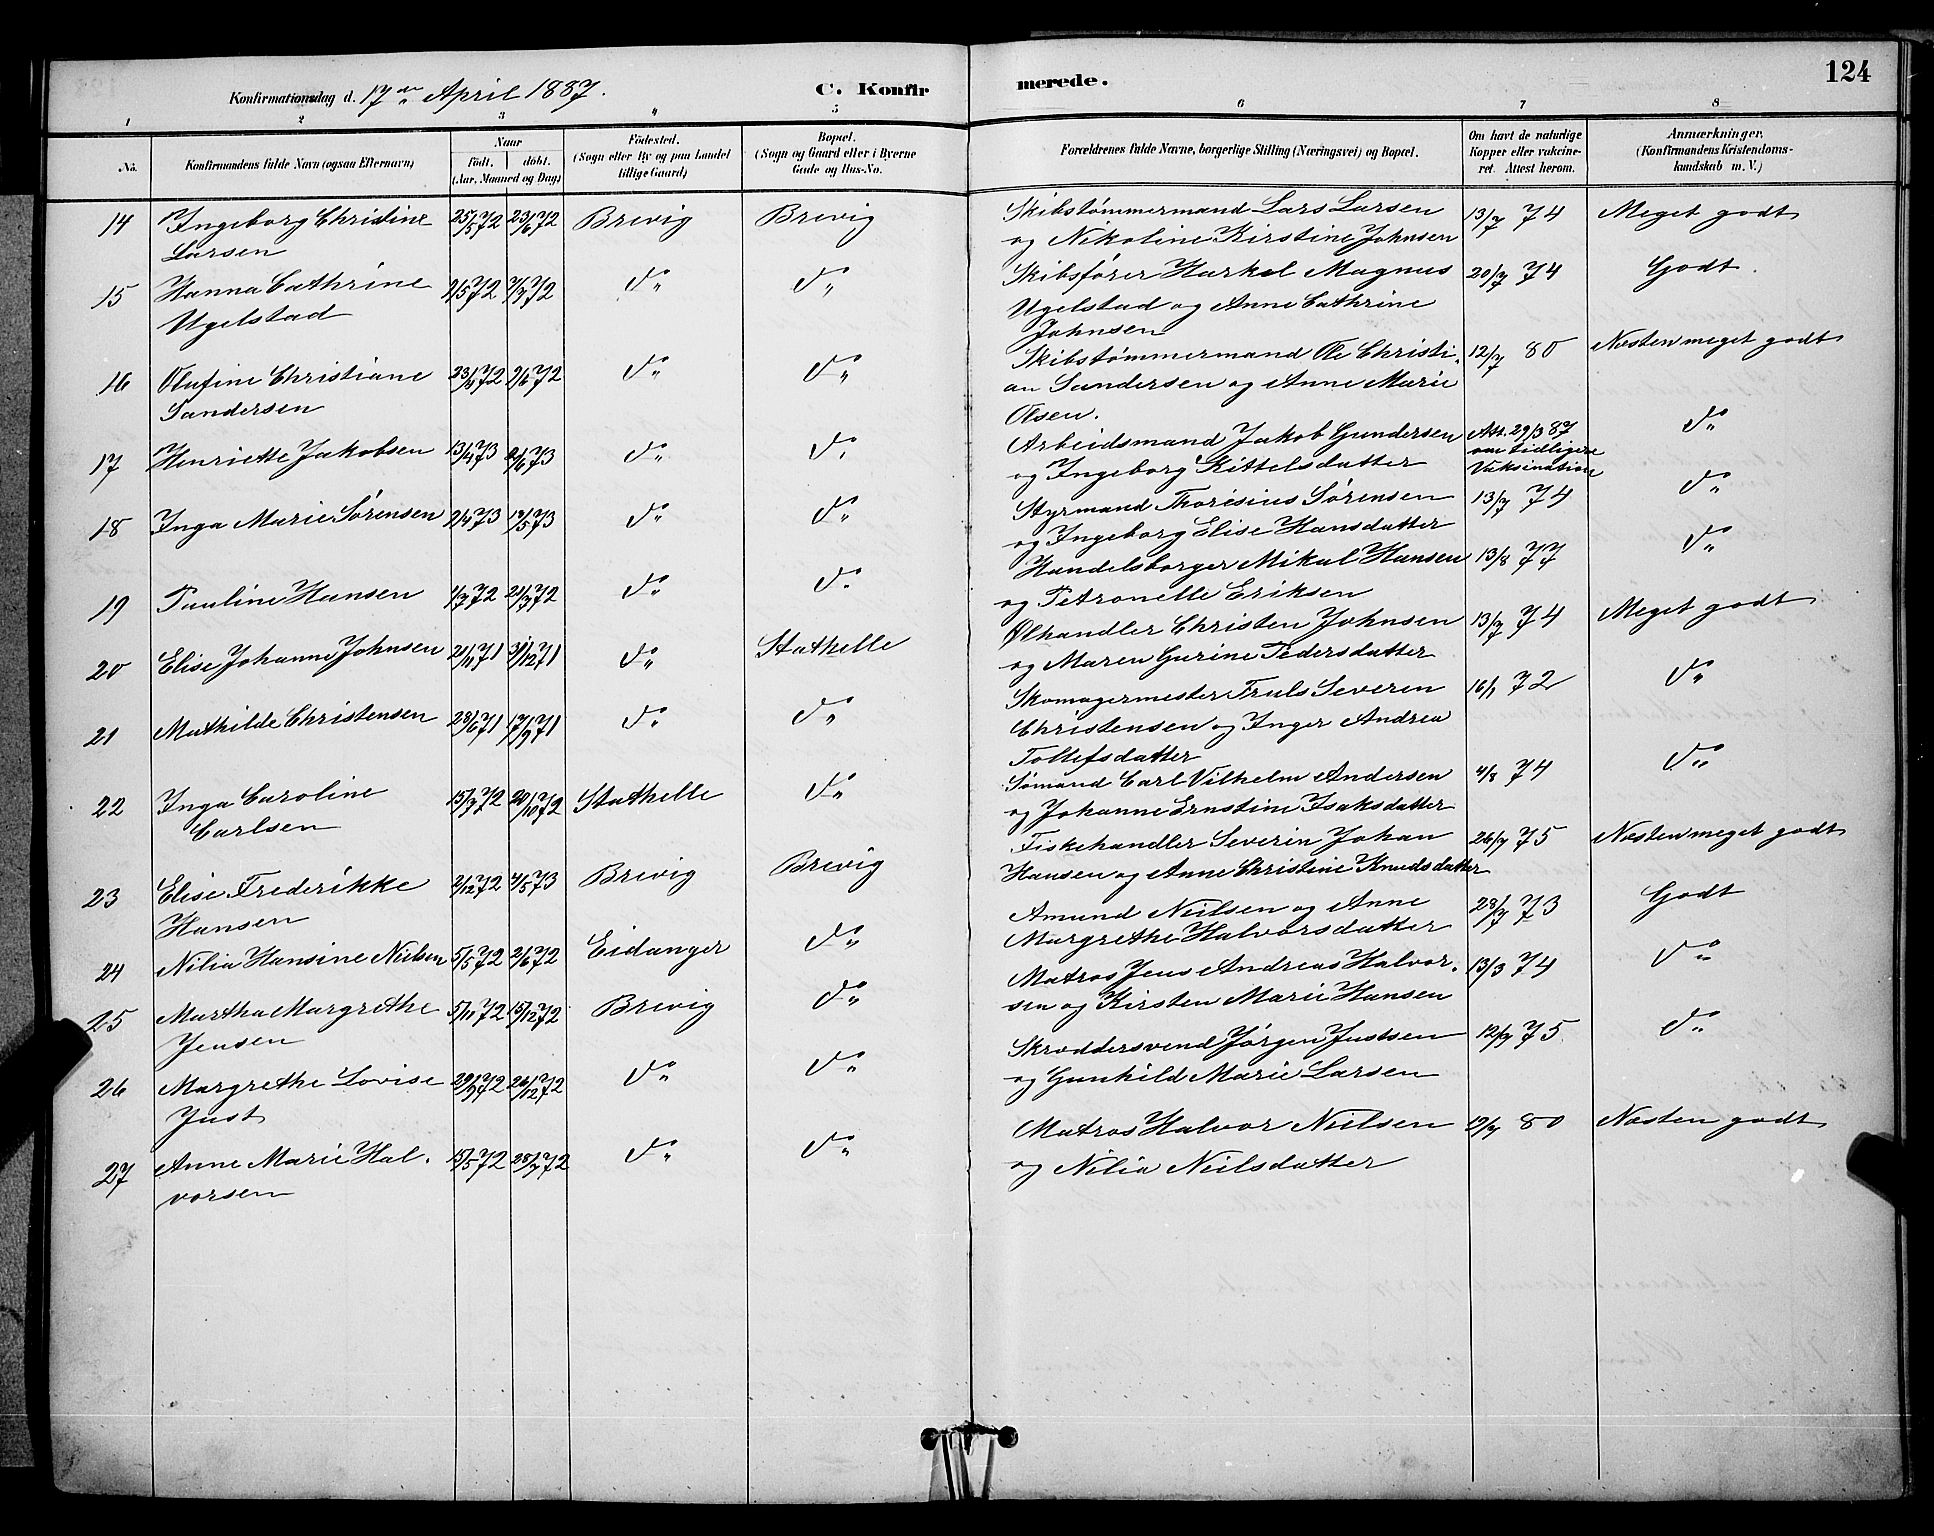 124
Konfirmationsdag d. 17de April 1887. C. Konfirmerede.
1 2 3 4 5 6 7 8
No. Konfirmandens fulde Navn (ogsaa Efternavn) Naar födt. döbt. (Aar, Maaned og Dag) Födested. (Sogn eller By og paa Landet tillige Gaard) Bopæl. (Sogn og Gaard eller i Byerne Gade og Hus-No. Forældrenes fulde Navne, borgerlige Stilling (Næringsvei) og Bopæl. Om havt de naturlige Kopper eller vakcineret. Attest herom. Anmærkninger. (Konfirmandens Kristendomskundskab m. V.)
14 Ingeborg Christine 25/5 72 23/6 72 Brevig Brevig Skibstømmermand Lars Larsen 13/7 74 Meget godt
Larsen og Nikoline Kirstine Johnsen
15 Hanna Cathrine 2/5 72 7/7 72 do do Skibsfører Harkel Magnus 20/7 74 Godt.
Ugelstad Ugelstad og Anne Cathrine
Johnsen
16 Olufine Christiane 23/4 72 2/6 72 do do Skibstømmermand Ole Christi- 12/7 80 Næsten meget godt
Sandersen an Sandersen og Anne Marie
Olsen.
17 Henriette Jakobsen 13/4 73 2/6 73 do do Arbeidsmand Jakob Gundersen Att. 29/3 87 do
og Ingeborg Kittelsdatter om tidligere
Vaksination
18 Inga Marie Sørensen 2/4 73 do do Styrmand Thoresius Sørensen 13/7 74 do
og Ingeborg Elise Hansdatter
19 Pauline Hansen 1/7 72 21/7 72 do do Handelsborger Mikal Hansen 13/8 77 do
og Petronelle Eriksen
20 Elise Johanne Johnsen 21/11 71 31/12 71 do Stathelle Ølhandler Christen Johnsen 13/7 74 Meget godt
og Maren Gurine Pedersdatter
21 Mathilde Christensen 28/6 71 17/9 71 do do Skomagermester Truls Severin 16/1 72 do
Christensen og Inger Andrea
Tollefsdatter
22 Inga Caroline 15/7 72 20/10 72 Stathelle do Sømand Carl Vilhelm Andersen 4/8 74 do
Carlsen og Johanne Ernstine Isaksdatter
23 Elise Frederikke 2/12 72 4/5 73 Brevig Brevig Fiskehandler Severin Johan 26/7 75 Næsten meget godt
Hansen Hansen og Anne Christine Knudsdatter
24 Nilia Hansine Nielsen 5/5 72 2/6 72 Eidanger do Amund Nielsen og Anne 28/7 73 Godt
Margrethe Halvorsdatter
25 Martha Margrethe 5/11 72 15/12 72 Brevig do Matros Jens Andreas Halvor- 13/3 74 do
Jensen sen og Kirsten Marie Hansen
26 Margrethe Lovise 29/9 72 26/12 72 do do Skræddersvend Jørgen Justsen 12/7 75. do
Just og Gunhild Marie Larsen
27 Anne Marie Hal- 15/5 72 28/7 72 do do Matros Halvor Nielsen 12/7 80 Næsten godt
vorsen og Nilia Neilsdatter